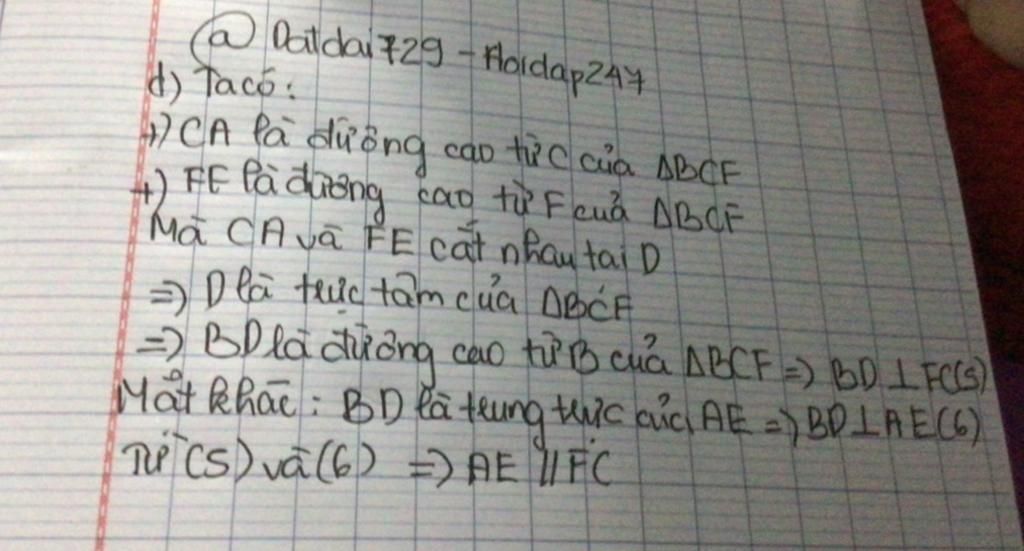 (a) Datdai729 - Hoidap247
d) Ta có:
+) CA là đường cao từ C của ΔBCF
+) FE là đường cao từ F của ΔBCF
Mà CA và FE cắt nhau tại D
=> D là trực tâm của ΔBCF
=> BD là đường cao từ B của ΔBCF => BD ⊥ FC (5)
Mặt khác: BD là trung trực của AE => BD ⊥ AE (6)
Từ (5) và (6) => AE // FC